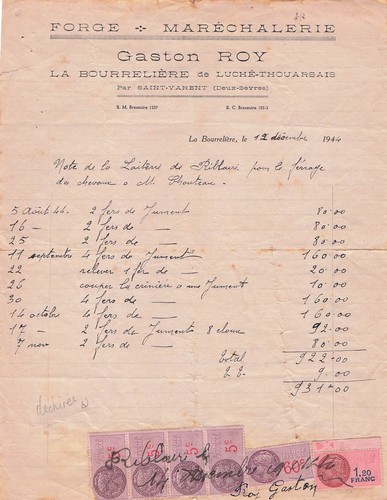 FORGE ÷ MARÉCHALERIE
Gaston ROY
LA BOURRELIÈRE de LUCHÉ-THOUARSAIS
Par SAINT-VARENT (Deux-Sèvres)
R. M. Bressuire 1257 R. C. Bressuire
La Bourrelière, le 12 décembre 1944
Note de la Laiterie de Riblaire pour le ferrage
des chevaux a M.
5 Août 44 2 fers de Jument 80.00
16 — 2 fers de — 80.00
25 2 fers de — 80.00
11 septembre 4 fers de Jument 160.00
22 relever 1 fer de — 20.00
26 couper la crinière a une Jument 10.00
30 4 fers de — 160.00
14 octobre 4 fers de — 160.00
17 — 2 fers de Juments 8 clous 92.00
7 nov 2 fers de — 80.00
total 922.00
9.00
931.00
Riblaire le
décembre
Roy Gaston
5c 5c 5c 60c
1,20
FRANC